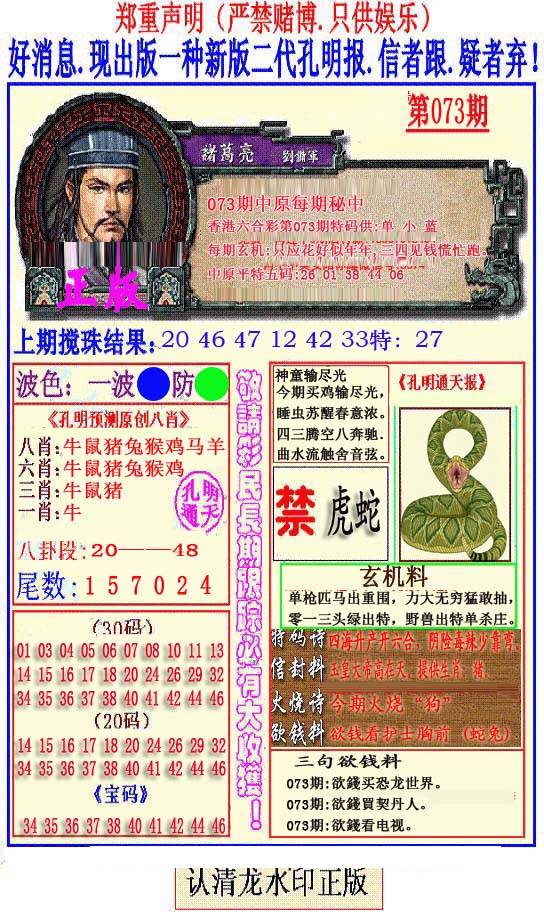 郑重声明（严禁赌博.只供娱乐）
好消息.现出版一种新版二代孔明报.信者跟.疑者弃!
第073期
諸葛亮 劉備軍
073期中原每期秘中
香港六合彩第073期特码供:单 小 蓝
每期玄机:只应花好似年年,三四见钱慌忙跑。
中原平特五码:26 01 38 44 06
正版
上期搅珠结果:20 46 47 12 42 33特: 27
波色: 一波 防
《孔明预测原创八肖》
八肖:牛鼠猪兔猴鸡马羊
六肖:牛鼠猪兔猴鸡
三肖:牛鼠猪
一肖:牛
孔明
通天
八卦段:20——48
尾数:1 5 7 0 2 4
(30码)
01 03 04 05 06 07 08 10 11 13
14 15 16 17 18 20 24 26 29 32
34 35 36 37 38 40 41 42 44 46
(20码)
14 15 16 17 18 20 24 26 29 32
34 35 36 37 38 40 41 42 44 46
《宝码》
34 35 36 37 38 40 41 42 44 46
敬請彩民長期跟踪必有大收獲!
神童输尽光
今期买鸡输尽光,
睡虫苏醒春意浓。
四三腾空八奔驰.
曲水流触舍音弦。
《孔明通天报》
禁 虎蛇
玄机料
单枪匹马出重围，力大无穷猛敢抽,
零一三头绿出特，野兽出特单杀庄。
特码诗 四海升产开六合，阴险毒辣少靠弯,
信封料 玉皇大帝高在天，提供生肖：猪.
火烧诗 今期火烧“狗”
欲钱料 欲钱看护士胸前（蛇兔）
三句欲钱料
073期:欲錢买恐龙世界。
073期:欲錢買契丹人。
073期:欲錢看电视。
认清龙水印正版